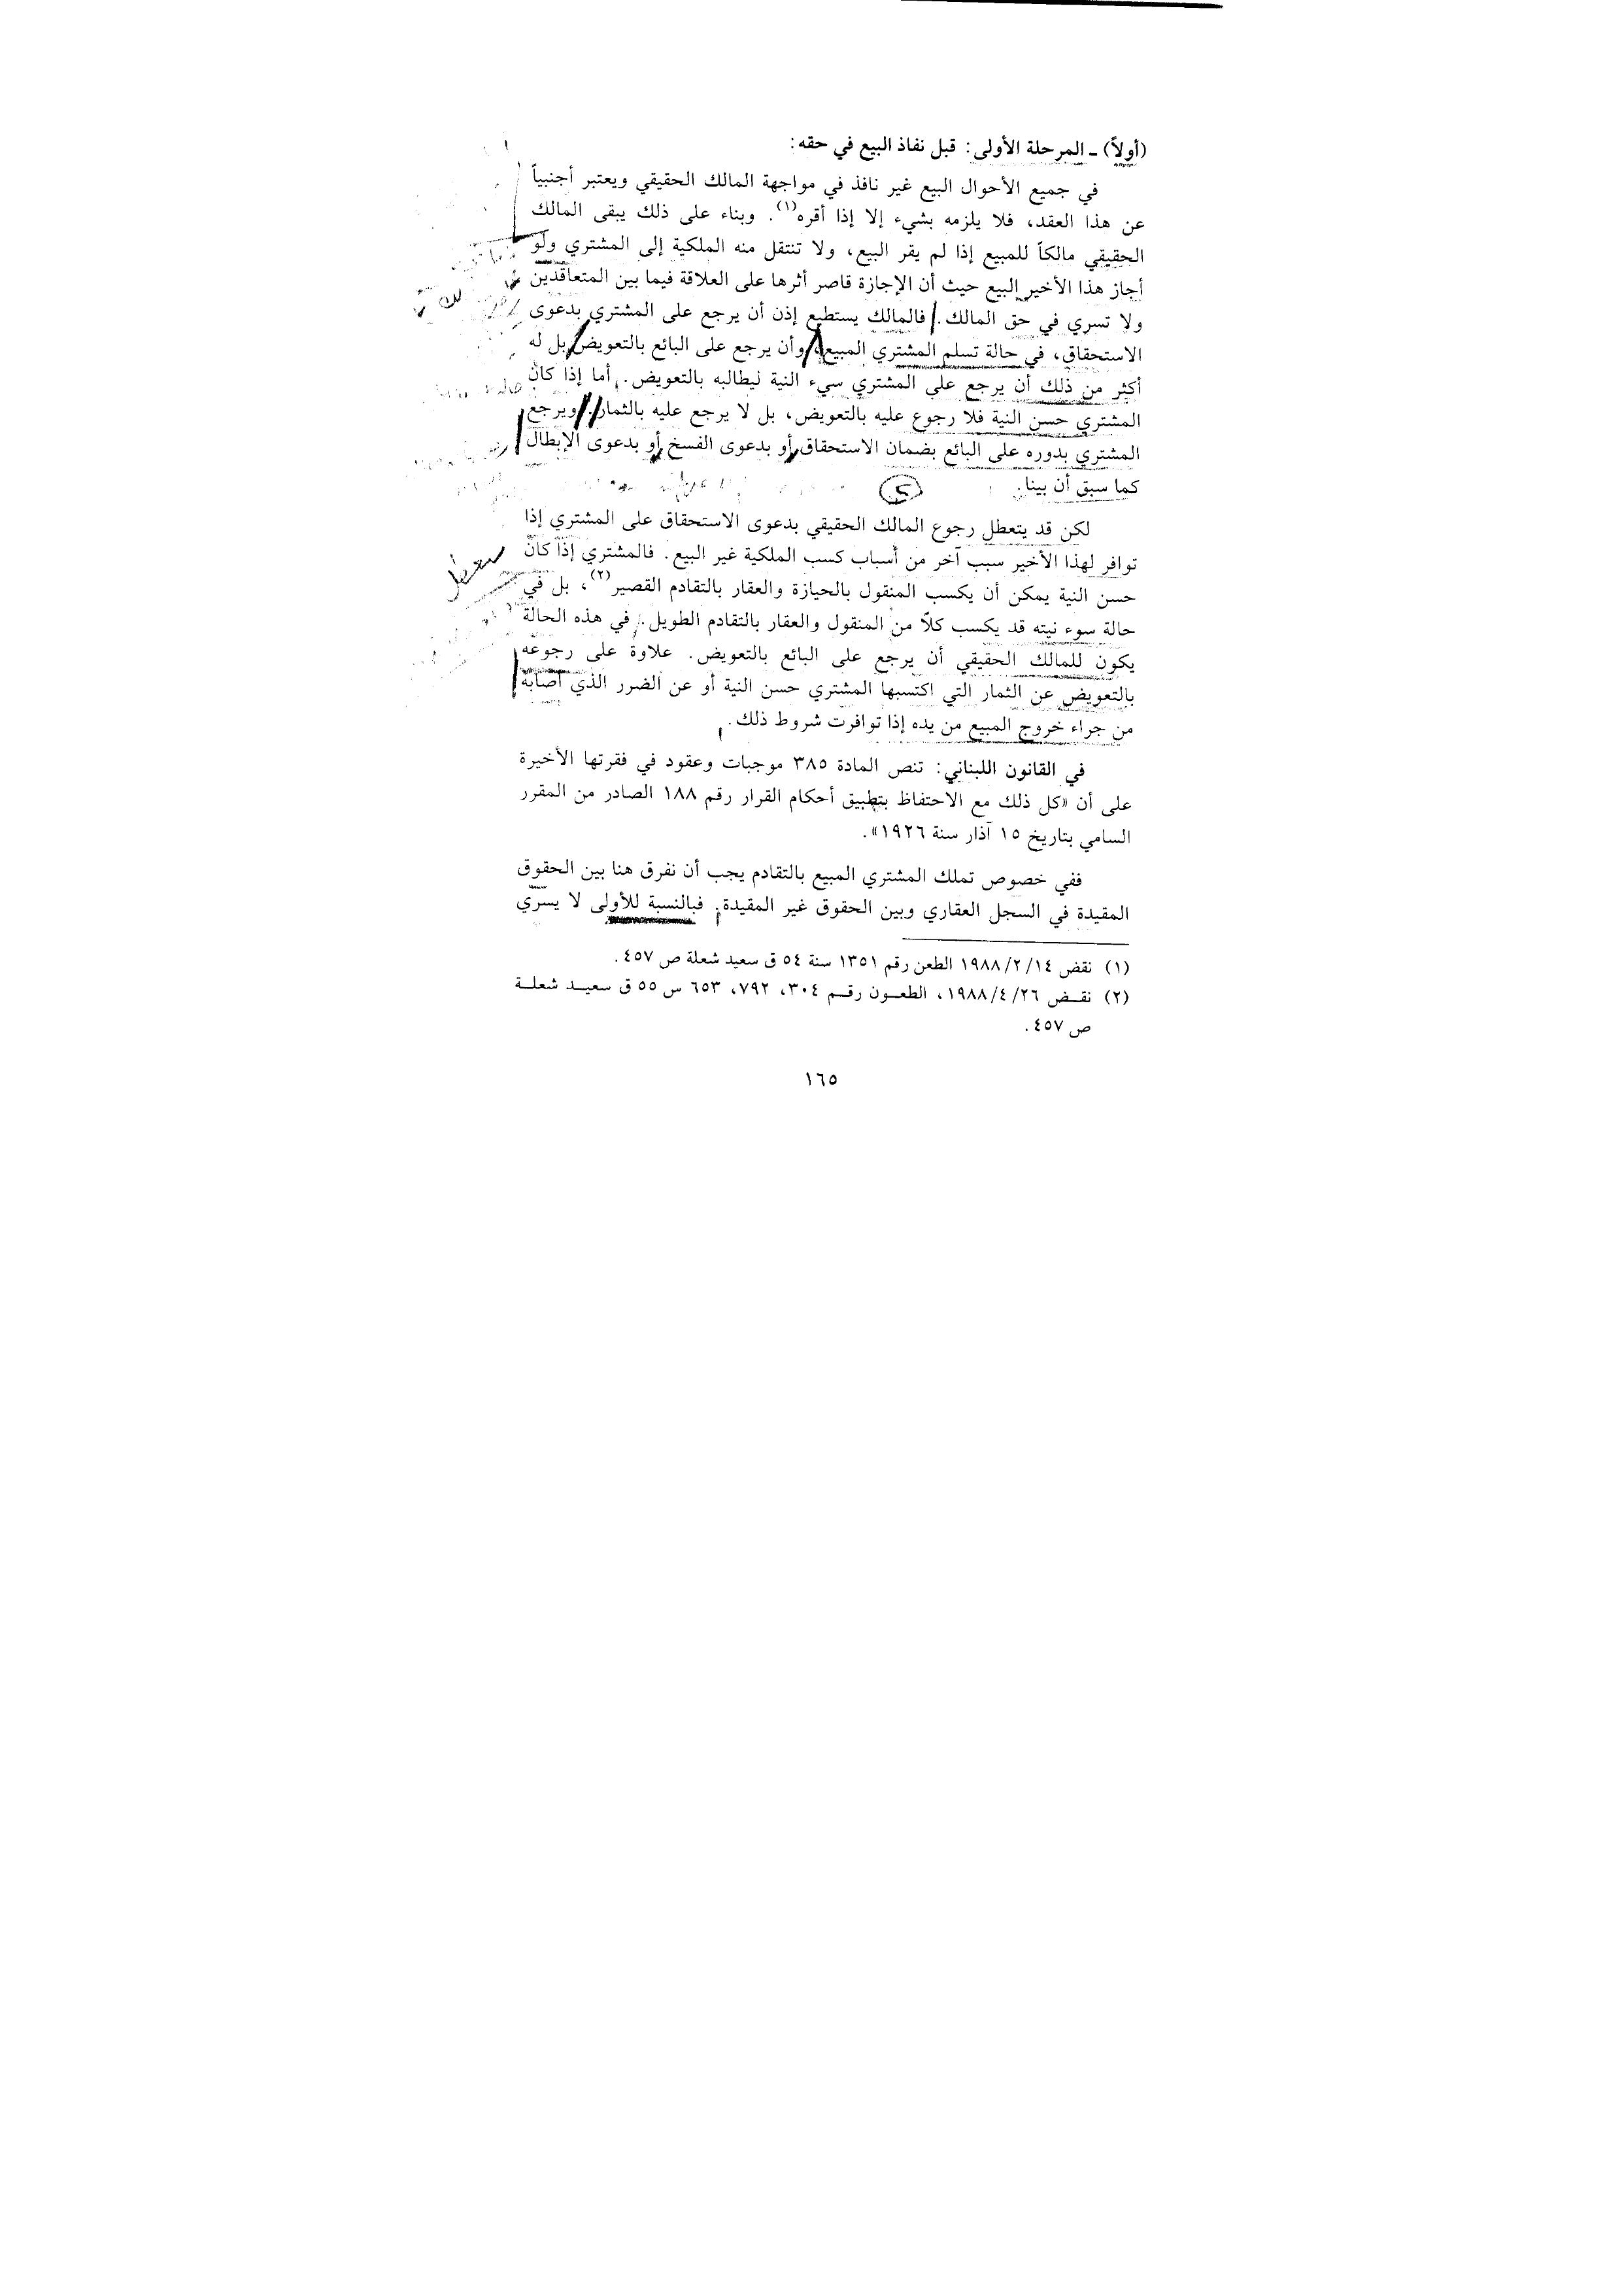 (أولاً) ـ المرحلة الأولى: قبل نفاذ البيع في حقه:
في جميع الأحوال البيع غير نافذ في مواجهة المالك الحقيقي ويعتبر أجنبياً
عن هذا العقد، فلا يلزمه بشيء إلا إذا أقره(١). وبناء على ذلك يبقى المالك
الحقيقي مالكاً للمبيع إذا لم يقر البيع، ولا تنتقل منه الملكية إلى المشتري ولو
أجاز هذا الأخير البيع حيث أن الإجازة قاصر أثرها على العلاقة فيما بين المتعاقدين
ولا تسري في حق المالك. فالمالك يستطيع إذن أن يرجع على المشتري بدعوى
الاستحقاق، في حالة تسلم المشتري المبيع، وأن يرجع على البائع بالتعويض بل له
أكثر من ذلك أن يرجع على المشتري سيء النية ليطالبه بالتعويض. أما إذا كان
المشتري حسن النية فلا رجوع عليه بالتعويض، بل لا يرجع عليه بالثمار. ويرجع
المشتري بدوره على البائع بضمان الاستحقاق أو بدعوى الفسخ أو بدعوى الإبطال
كما سبق أن بينا.
لكن قد يتعطل رجوع المالك الحقيقي بدعوى الاستحقاق على المشتري إذا
توافر لهذا الأخير سبب آخر من أسباب كسب الملكية غير البيع. فالمشتري إذا كان
حسن النية يمكن أن يكسب المنقول بالحيازة والعقار بالتقادم القصير(٢)، بل في
حالة سوء نيته قد يكسب كلاً من المنقول والعقار بالتقادم الطويل. في هذه الحالة
يكون للمالك الحقيقي أن يرجع على البائع بالتعويض. علاوة على رجوعه
بالتعويض عن الثمار التي اكتسبها المشتري حسن النية أو عن الضرر الذي أصابه
من جراء خروج المبيع من يده إذا توافرت شروط ذلك.
في القانون اللبناني: تنص المادة ٣٨٥ موجبات وعقود في فقرتها الأخيرة
على أن «كل ذلك مع الاحتفاظ بتطبيق أحكام القرار رقم ١٨٨ الصادر من المقرر
السامي بتاريخ ١٥ آذار سنة ١٩٢٦».
ففي خصوص تملك المشتري المبيع بالتقادم يجب أن نفرق هنا بين الحقوق
المقيدة في السجل العقاري وبين الحقوق غير المقيدة. فبالنسبة للأولى لا يسري
(١) نقض ١٤/٢/١٩٨٨ الطعن رقم ١٣٥١ سنة ٥٤ ق سعيد شعلة ص ٤٥٧.
(٢) نقـض ٢٦/٤/١٩٨٨، الطعـون رقـم ٣٠٤، ٧٩٢، ٦٥٣ س ٥٥ ق سعيـد شعلـة
ص ٤٥٧.
١٦٥